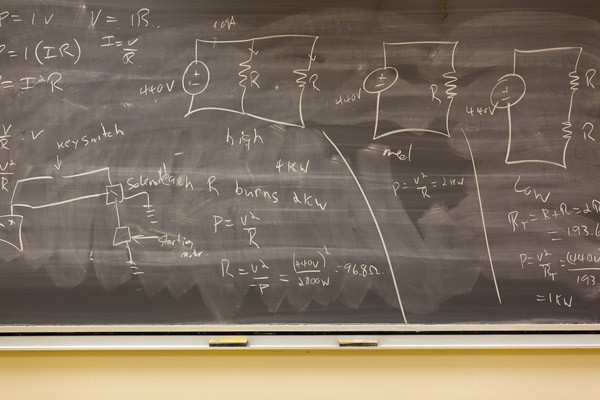 P = IV V = IR
P = I (IR) I = V/R
P = I²R
V/R V
V²/R
keyswitch
solenoid
starting
motor
440V R R
high
4kW
each R burns 2kW
P = V²/R
R = V²/P = (440V)²/2000W = 96.8Ω
440V R
med
P = V²/R = 2kW
440V R R
Low
R_T = R + R = 2R
= 193.6
P = V²/R_T = (440V)²/193.
= 1kW